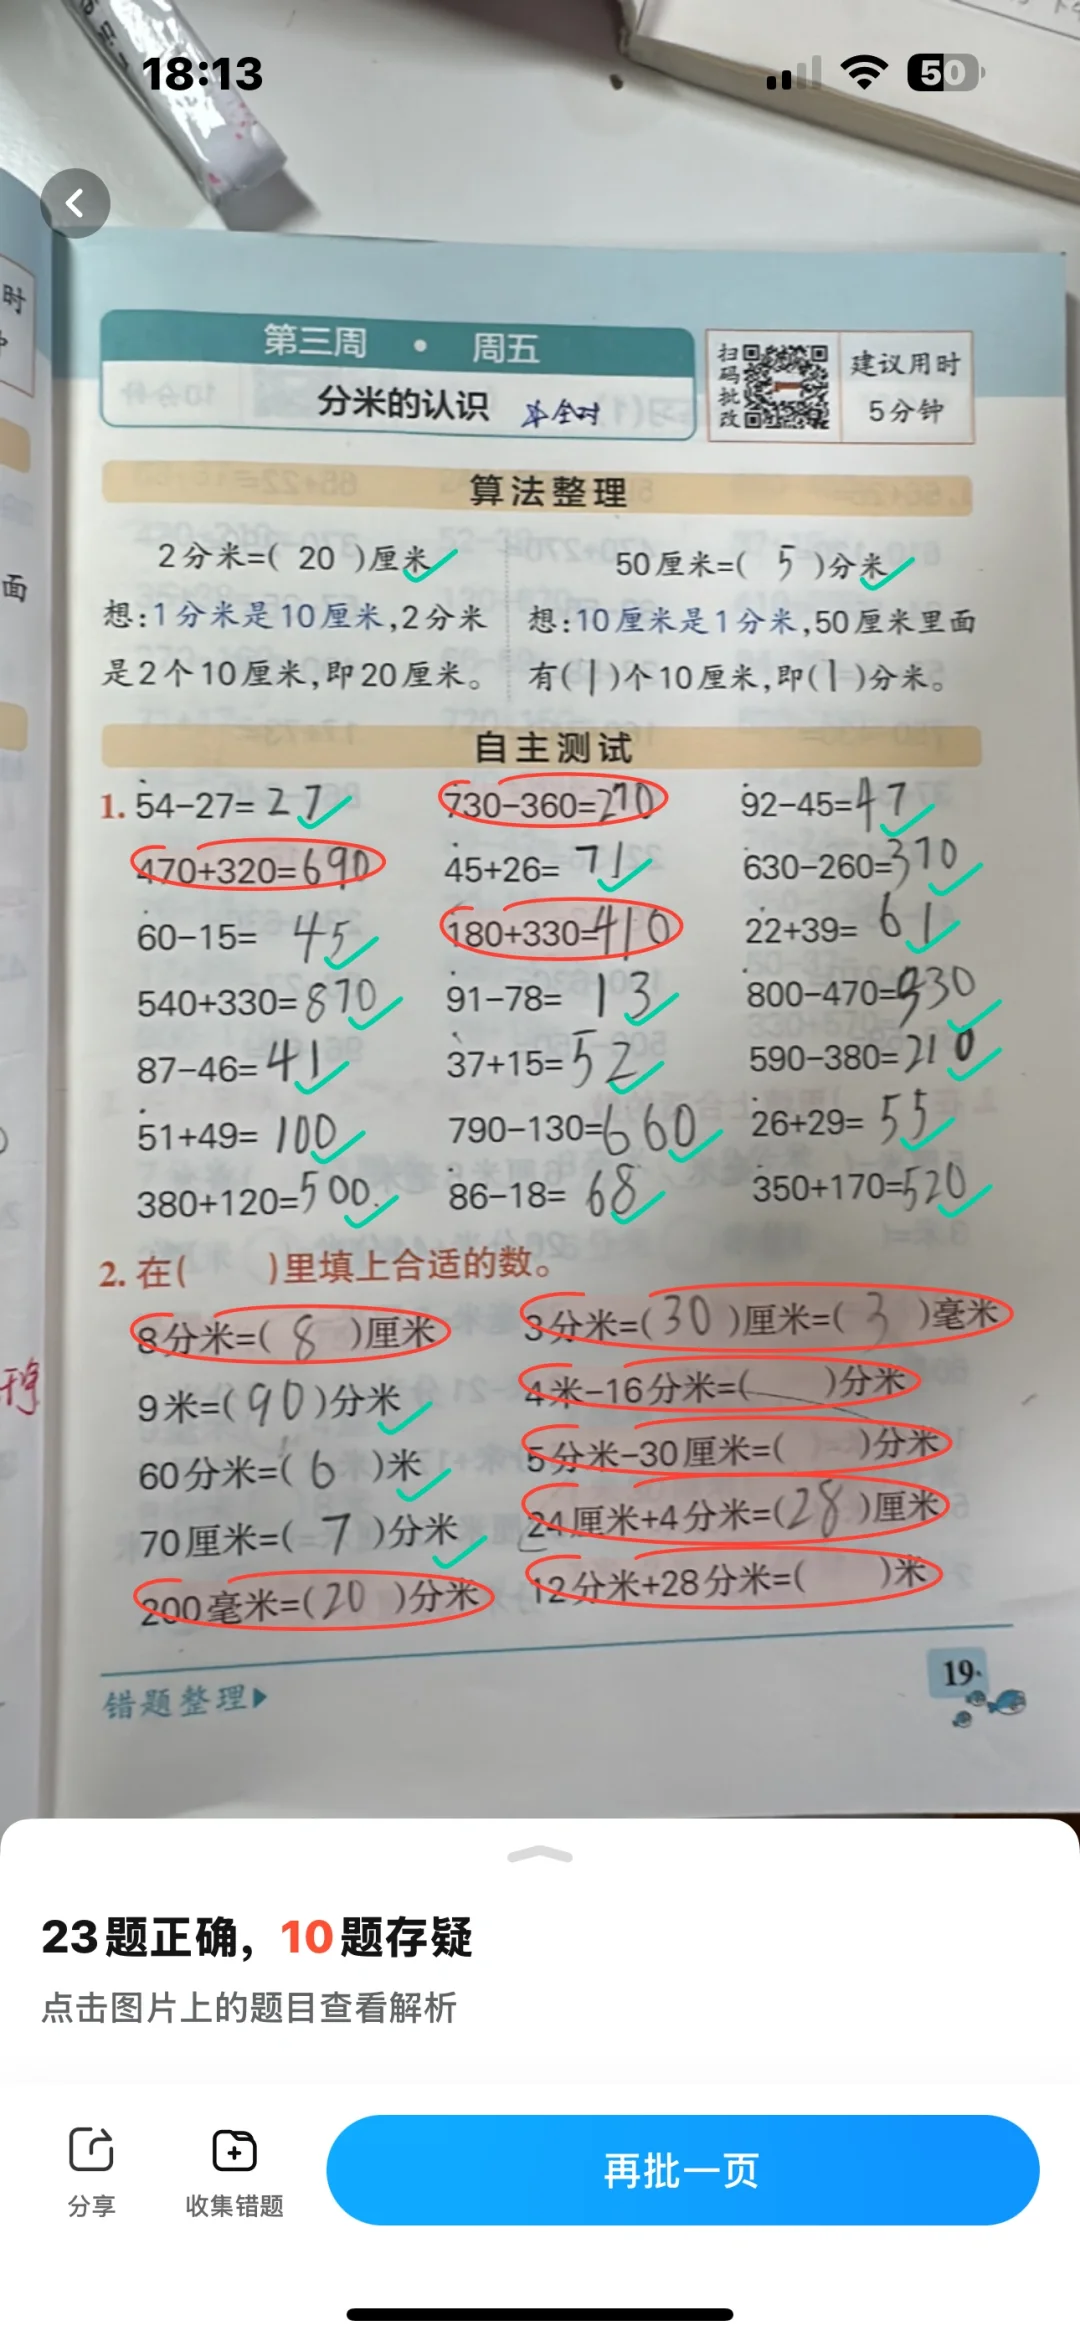 18:13
50
时
第三周 · 周五
分米的认识
扫码批改
建议用时
5分钟
算法整理
2分米=( 20 )厘米
想:1分米是10厘米,2分米
是2个10厘米,即20厘米。
50厘米=( 5 )分米
想:10厘米是1分米,50厘米里面
有(1)个10厘米,即(1)分米。
面
自主测试
1. 54-27= 27 730-360=270 92-45=47
470+320=690 45+26= 71 630-260=370
60-15= 45 180+330=410 22+39= 61
540+330=870 91-78= 13 800-470=330
87-46=41 37+15=52 590-380=210
51+49= 100 790-130=660 26+29= 55
380+120=500. 86-18= 68 350+170=520
2. 在( )里填上合适的数。
8分米=( 8 )厘米 3分米=(30 )厘米=( 3 )毫米
9米=(90)分米 4米-16分米=( )分米
60分米=( 6 )米 5分米-30厘米=( )分米
70厘米=( 7 )分米 24厘米+4分米=(28)厘米
200毫米=(20 )分米 12分米+28分米=( )米
19
错题整理▶
23题正确，10题存疑
点击图片上的题目查看解析
分享
收集错题
再批一页